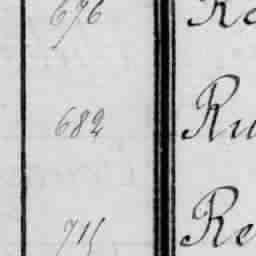 676 Ro
682 Ru
715 Re